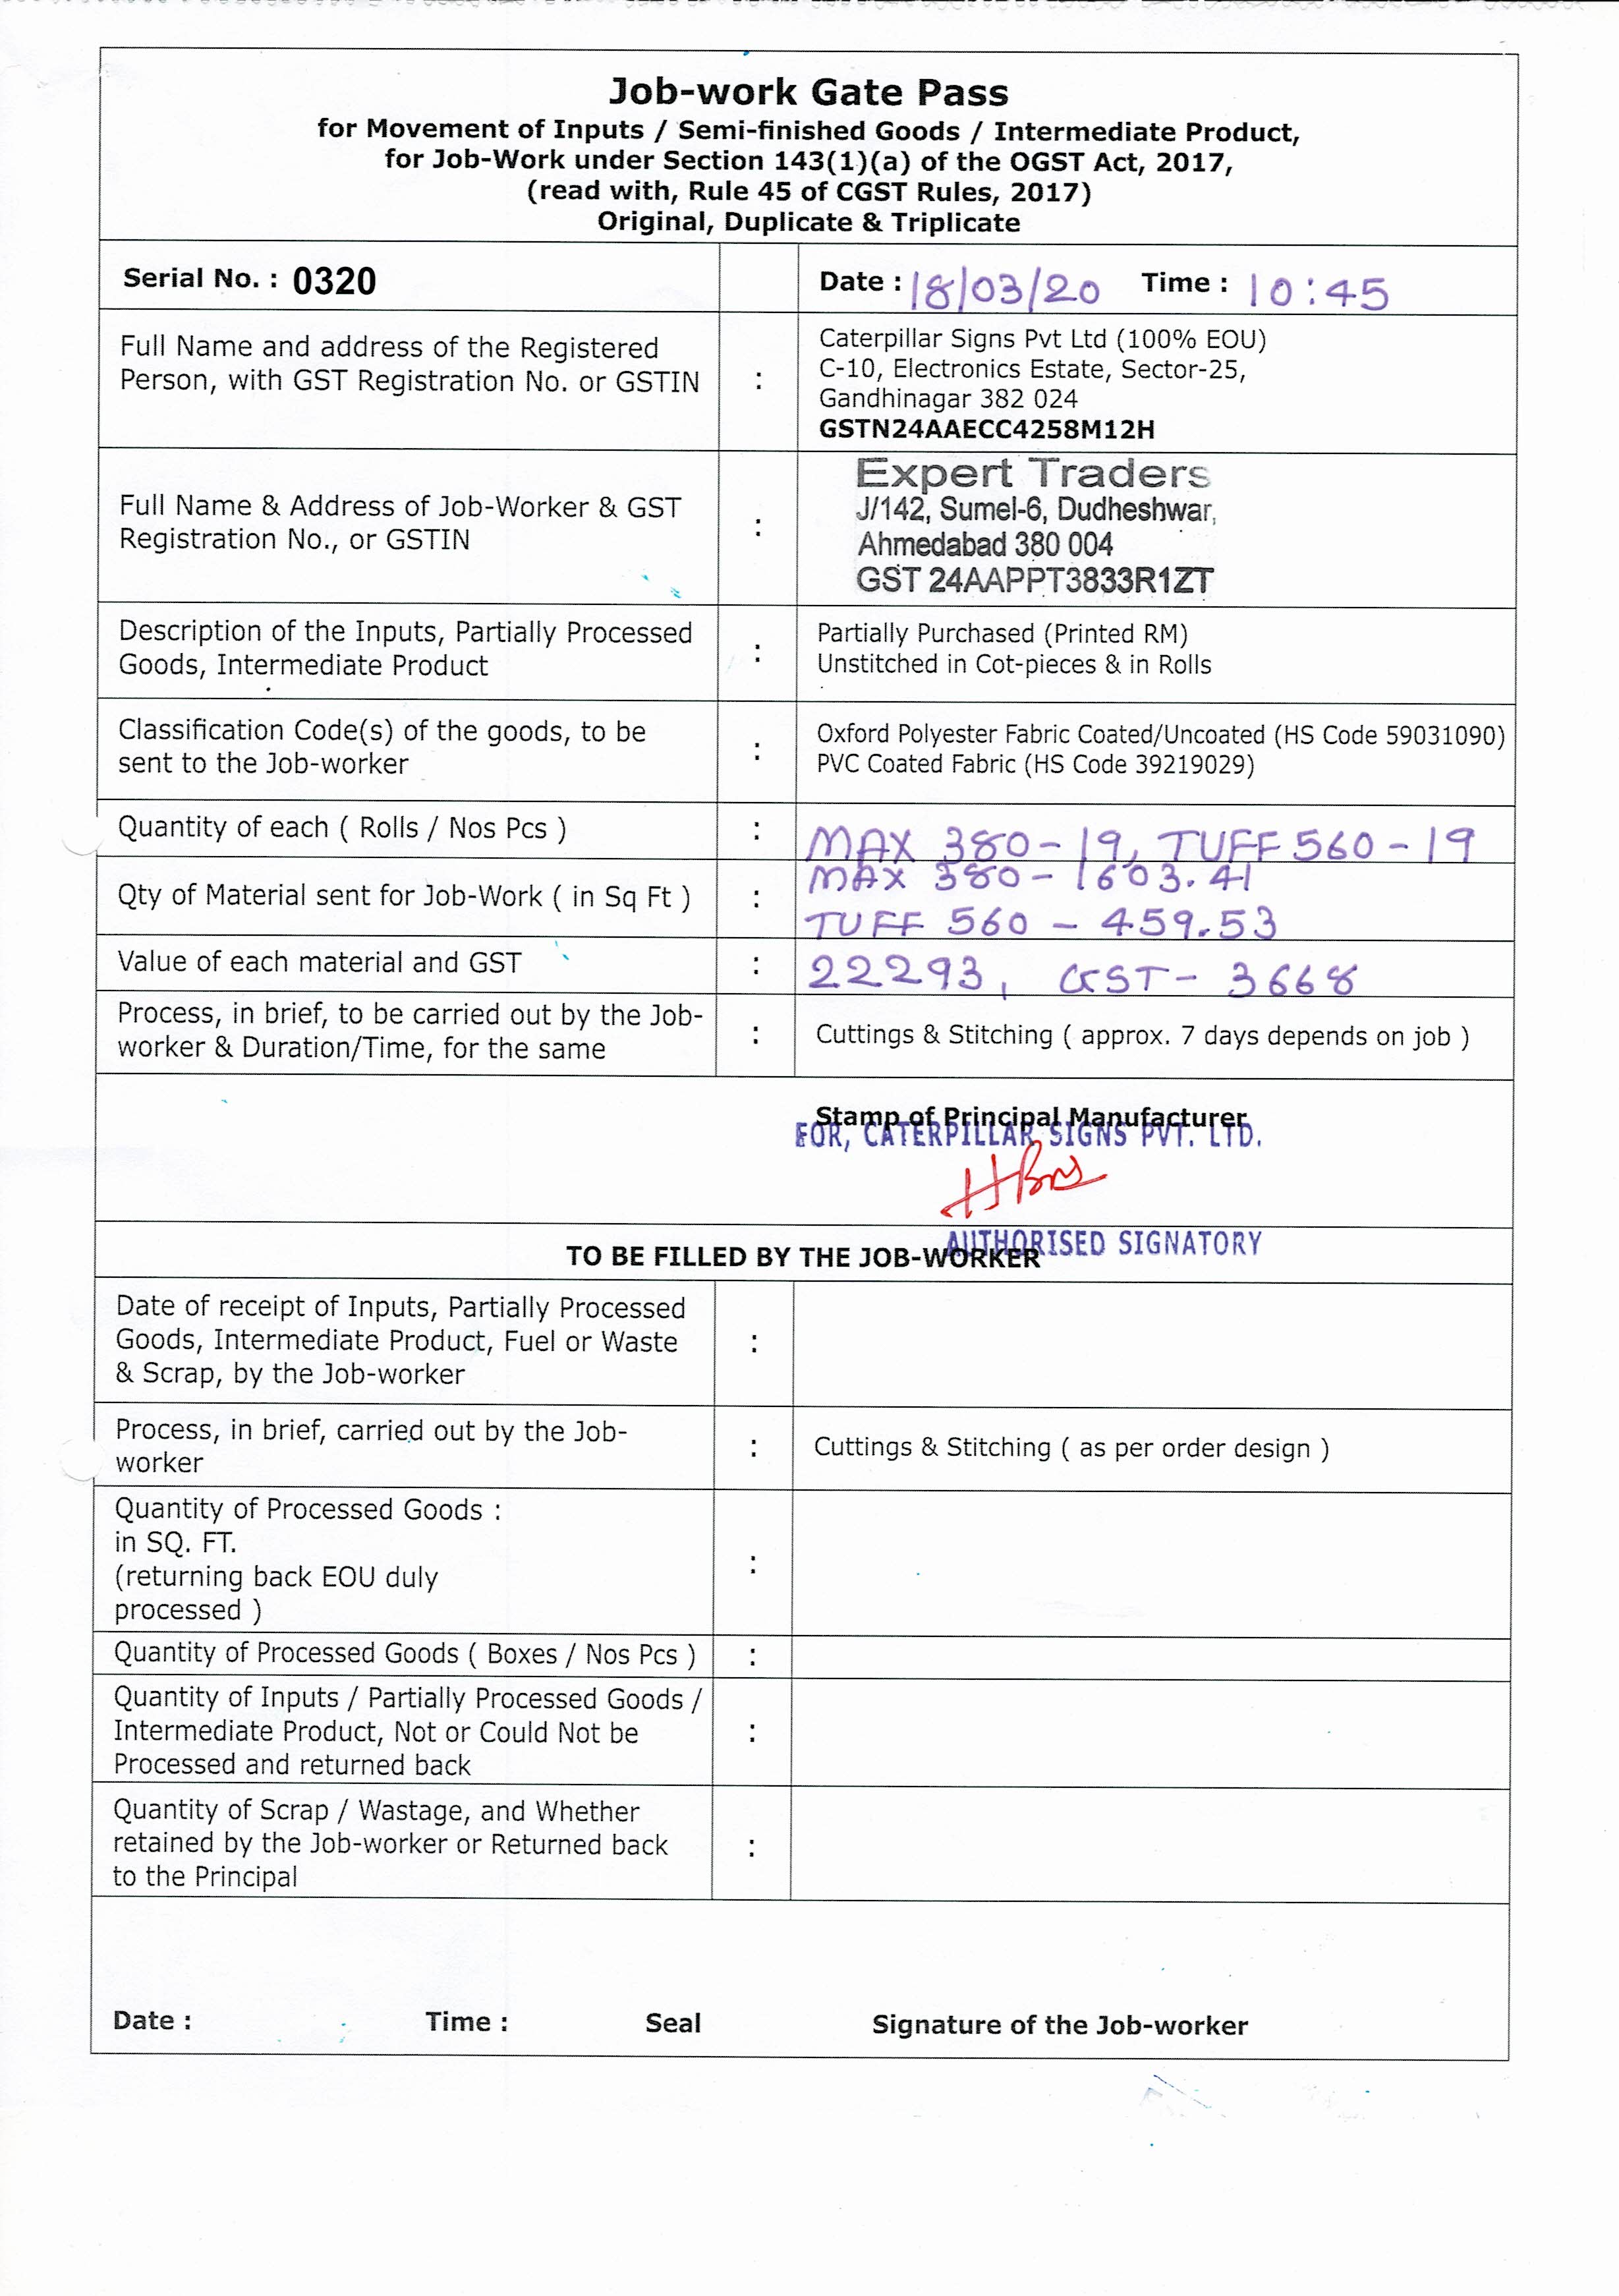 Job-work Gate Pass
for Movement of Inputs / Semi-finished Goods / Intermediate Product,
for Job-Work under Section 143(1)(a) of the OGST Act, 2017,
(read with, Rule 45 of CGST Rules, 2017)
Original, Duplicate & Triplicate
Serial No. : 0320
Date : 18/03/20 Time : 10:45
Full Name and address of the Registered
Person, with GST Registration No. or GSTIN
:
Caterpillar Signs Pvt Ltd (100% EOU)
C-10, Electronics Estate, Sector-25,
Gandhinagar 382 024
GSTN24AAECC4258M12H
Full Name & Address of Job-Worker & GST
Registration No., or GSTIN
:
Expert Traders
J/142, Sumel-6, Dudheshwar,
Ahmedabad 380 004
GST 24AAPPT3833R1ZT
Description of the Inputs, Partially Processed
Goods, Intermediate Product
:
Partially Purchased (Printed RM)
Unstitched in Cot-pieces & in Rolls
Classification Code(s) of the goods, to be
sent to the Job-worker
:
Oxford Polyester Fabric Coated/Uncoated (HS Code 59031090)
PVC Coated Fabric (HS Code 39219029)
Quantity of each ( Rolls / Nos Pcs )
:
MAX 380-19, TUFF 560-19
Qty of Material sent for Job-Work ( in Sq Ft )
:
MAX 380- 1603.41
TUFF 560 - 459.53
Value of each material and GST
:
22293, GST- 3668
Process, in brief, to be carried out by the Job-
worker & Duration/Time, for the same
:
Cuttings & Stitching ( approx. 7 days depends on job )
Stamp of Principal Manufacturer
FOR, CATERPILLAR SIGNS PVT. LTD.
AUTHORISED SIGNATORY
TO BE FILLED BY THE JOB-WORKER
Date of receipt of Inputs, Partially Processed
Goods, Intermediate Product, Fuel or Waste
& Scrap, by the Job-worker
:
Process, in brief, carried out by the Job-
worker
:
Cuttings & Stitching ( as per order design )
Quantity of Processed Goods :
in SQ. FT.
(returning back EOU duly
processed )
:
Quantity of Processed Goods ( Boxes / Nos Pcs )
:
Quantity of Inputs / Partially Processed Goods /
Intermediate Product, Not or Could Not be
Processed and returned back
:
Quantity of Scrap / Wastage, and Whether
retained by the Job-worker or Returned back
to the Principal
:
Date : Time : Seal Signature of the Job-worker